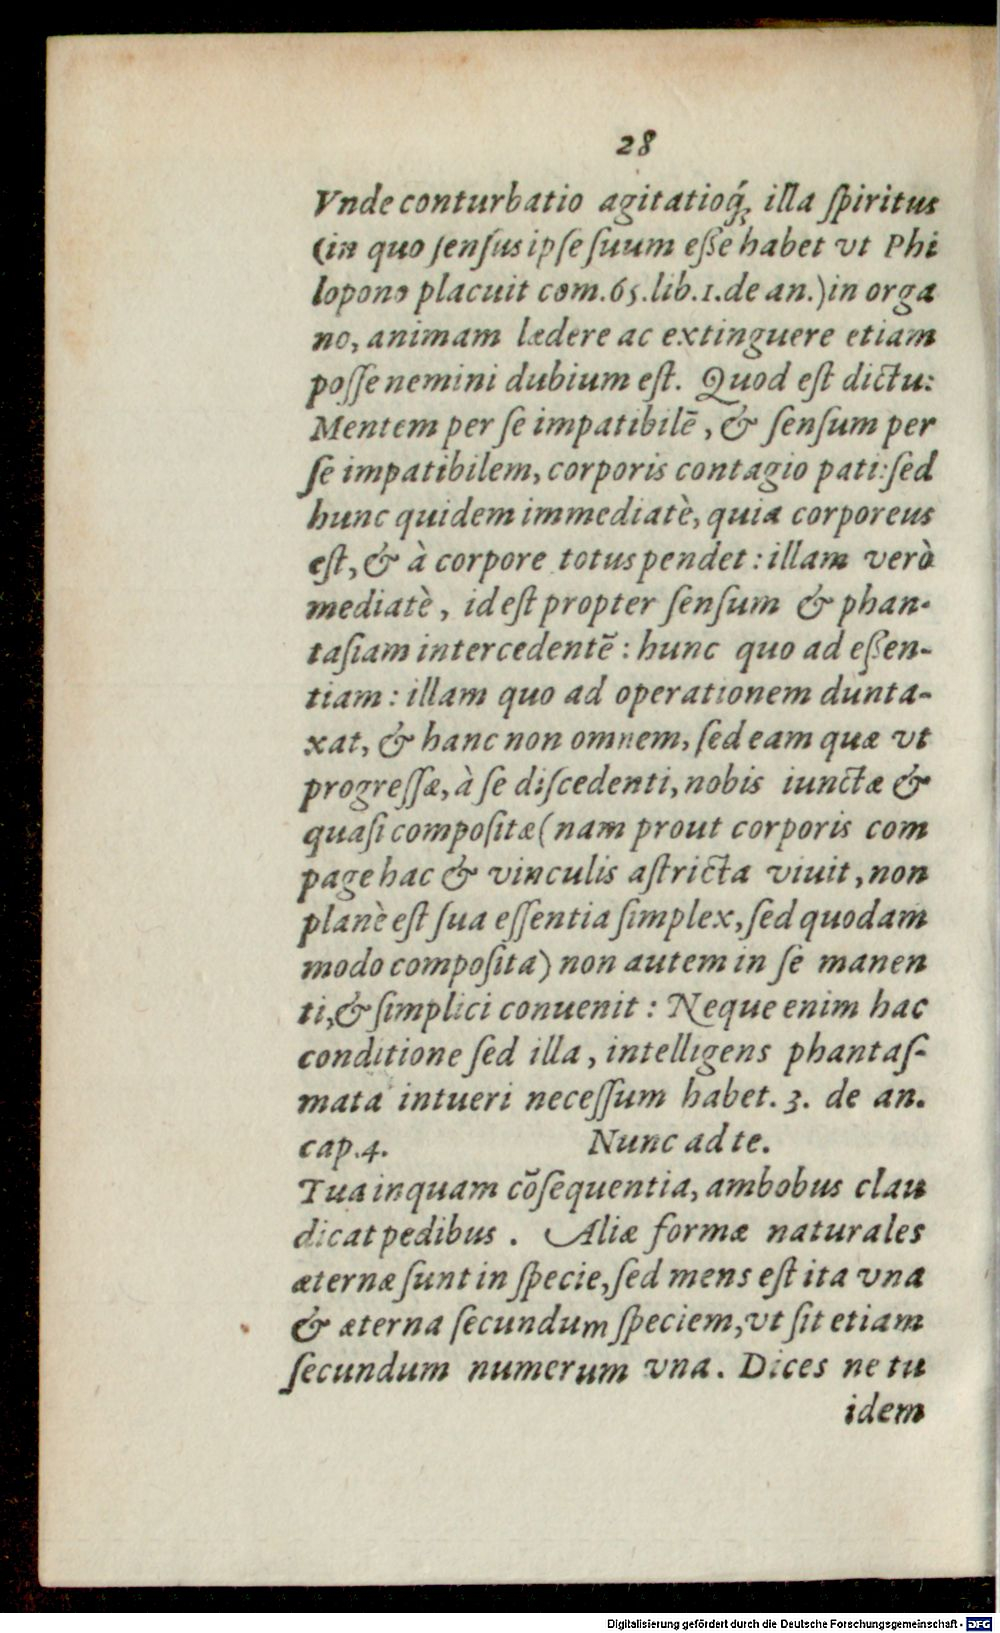 28
Vnde conturbatio agitatioq́ꝫ illa ſpiritus
(in quo ſenſus ipſe ſuum eſſe habet vt Phi
lopono placuit com.65.lib.1.de an.)in orga
no, animam lædere ac extinguere etiam
poſſe nemini dubium eſt. Quod eſt dictu:
Mentem per ſe impatibilē, & ſenſum per
ſe impatibilem, corporis contagio pati:ſed
hunc quidem immediatè, quia corporeus
eſt, & à corpore totus pendet: illam verò
mediatè, id eſt propter ſenſum & phan-
taſiam intercedentē: hunc quo ad eſſen-
tiam: illam quo ad operationem dunta-
xat, & hanc non omnem, ſed eam quæ vt
progreſſæ, à ſe diſcedenti, nobis iunctæ &
quaſi compoſitæ(nam prout corporis com
page hac & vinculis aſtricta viuit, non
planè eſt ſua eſſentia ſimplex, ſed quodam
modo compoſita) non autem in ſe manen
ti,& ſimplici conuenit: Neque enim hac
conditione ſed illa, intelligens phantaſ-
mata intueri neceſſum habet. 3. de an.
cap.4. Nunc ad te.
Tua inquam cōſequentia, ambobus clau
dicat pedibus. Aliæ formæ naturales
æternæ ſunt in ſpecie, ſed mens eſt ita vna
& æterna ſecundum ſpeciem, vt ſit etiam
ſecundum numerum vna. Dices ne tu
idem
Digitalisierung gefördert durch die Deutsche Forschungsgemeinschaft - DFG